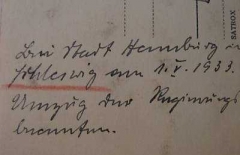 Bei Stadt Hamburg in
Schleswig am 1. V. 1933.
Umzug der Regierungs
beamten.
SATROX